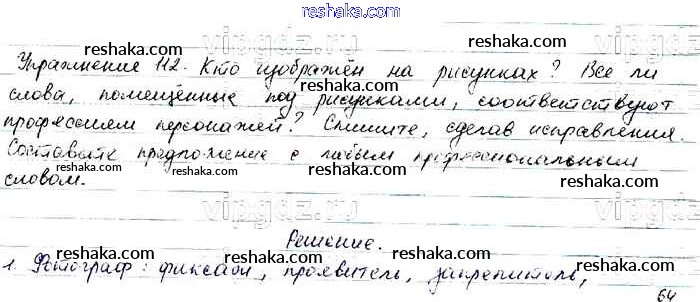 reshaka.com
reshaka.com reshaka.com
Упражнение 112. Кто изображён на рисунках? Все ли
vipgdz.ru vipgdz.ru
слова, помещённые под рисунками, соответствуют
reshaka.com reshaka.com
профессиям персонажей? Спишите, сделав исправления.
Составьте предложение с любым профессиональным
reshaka.com reshaka.com
словом.
vipgdz.ru vipgdz.ru
Решение.
reshaka.com reshaka.com
1. Фотограф: фиксаж, проявитель, закрепитель,
64
reshaka.com